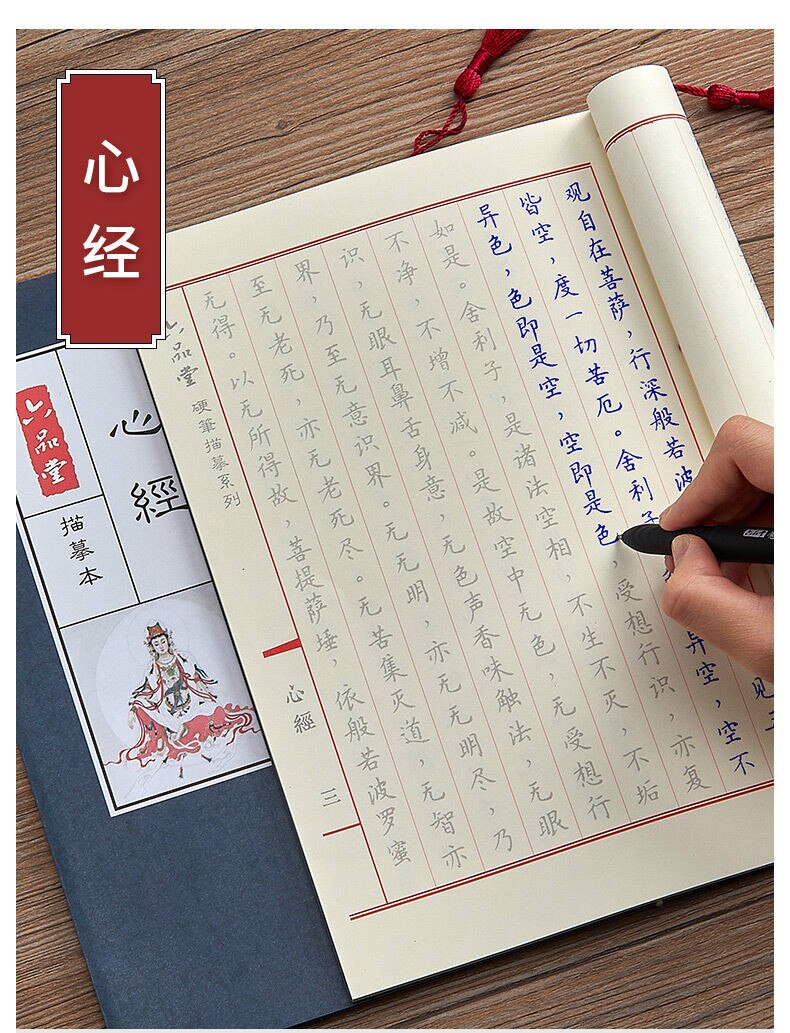 心经
观自在菩萨，行深般若波 见
皆空，度一切苦厄。舍利子 异空，空不
异色，色即是空，空即是色，受想行识，亦复
如是。舍利子，是诸法空相，不生不灭，不垢
不净，不增不减。是故空中无色，无受想行
识，无眼耳鼻舌身意，无色声香味触法，无眼
界，乃至无意识界。无无明，亦无无明尽，乃
至无老死，亦无老死尽。无苦集灭道，无智亦
无得。以无所得故，菩提萨埵，依般若波罗蜜
六品堂 硬筆描摹系列
心經
三
心經
六品堂
描摹本